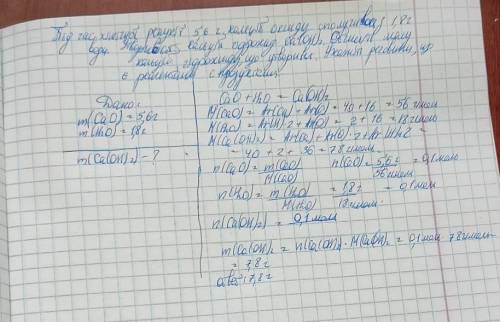 Під час хімічної реакції 5,6 г кальцій оксиду сполучився 1,8 г
води. Утворився кальцій гідроксид Ca(OH)2. Обчисли масу
кальцій гідроксиду, що утворився. Укажи речовини, що
є реагентами і продуктами
Дано:
m(CaO) = 5,6г
m(H2O) = 1,8г
m(Ca(OH)2) - ?
CaO + H2O = Ca(OH)2
M(CaO) = Ar(Ca) + Ar(O) = 40 + 16 = 56 г/моль
M(H2O) = Ar(H)·2 + Ar(O) = 2 + 16 = 18 г/моль
M(Ca(OH)2) = Ar(Ca) + Ar(O)·2 + Ar(H)·2 =
= 40 + 2 + 36 = 78 г/моль.
n(CaO) = m(CaO) / M(CaO) n(CaO) = 5,6г / 56 г/моль = 0,1 моль
n(H2O) = m(H2O) / M(H2O) = 1,8г / 18 г/моль = 0,1 моль
n(Ca(OH)2) = 0,1 моль
m(Ca(OH)2 = n(Ca(OH)2 · M(Ca(OH)2 = 0,1 моль · 78 г/моль
= 7,8г
: 7,8г